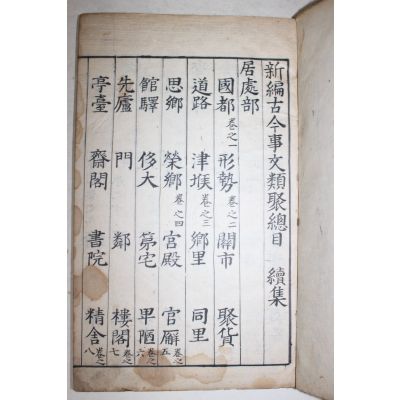 新編古今事文類聚總目　續集
居處部
國都卷之一　形勢卷之二　關市　聚貨
道路　津堠卷之三　鄉里　同里
思鄉　榮鄉卷之四　宮殿　官廨卷之五
館驛　侈大　第宅　卑陋卷之六
先廬　門　鄰　樓閣卷之七
亭臺　齋閣　書院　精舍卷之八